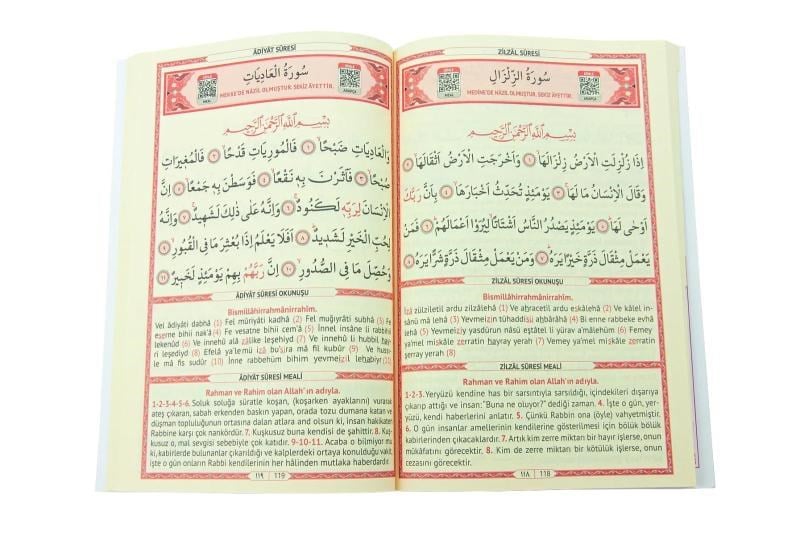 ZİLZÂL SÛRESİ
سُورَةُ الزِّلْزَالِ
MEAL
ARAPÇA
MEDİNE'DE NÂZİL OLMUŞTUR. SEKİZ ÂYETTİR.
بِسْمِ اللّٰهِ الرَّحْمٰنِ الرَّحِيمِ
اِذَا زُلْزِلَتِ الْاَرْضُ زِلْزَالَهَاۙ ﴿١﴾ وَاَخْرَجَتِ الْاَرْضُ اَثْقَالَهَاۙ ﴿٢﴾
وَقَالَ الْاِنْسَانُ مَا لَهَاۚ ﴿٣﴾ يَوْمَئِذٍ تُحَدِّثُ اَخْبَارَهَاۙ ﴿٤﴾ بِاَنَّ رَبَّكَ
اَوْحٰى لَهَاۜ ﴿٥﴾ يَوْمَئِذٍ يَصْدُرُ النَّاسُ اَشْتَاتًا لِيُرَوْا اَعْمَالَهُمْۜ ﴿٦﴾ فَمَنْ
يَعْمَلْ مِثْقَالَ ذَرَّةٍ خَيْرًا يَرَهُۜ ﴿٧﴾ وَمَنْ يَعْمَلْ مِثْقَالَ ذَرَّةٍ شَرًّا يَرَهُ ﴿٨﴾
ZİLZÂL SÛRESİ OKUNUŞU
Bismillâhirrahmânirrahîm.
İzâ zülziletil ardu zilzâlehâ (1) Ve aḥracetil ardu eskâlehâ (2) Ve kâlel in-
sânü mâ lehâ (3) Yevmeizin tühaddisü aḥbârahâ (4) Bi enne rabbeke evhâ
lehâ (5) Yevmeiziy yasdürun nâsü eştâtel li yürav a'mâlehüm (6) Femey
ya'mel miskâle zerratin ḥayray yerah (7) Vemey ya'mel miskâle zerratin
şerray yerah (8)
ZİLZÂL SÛRESİ MEALİ
Rahman ve Rahim olan Allah'ın adıyla.
1-2-3. Yeryüzü kendine has bir sarsıntıyla sarsıldığı, içindekileri dışarıya
çıkarıp attığı ve insan: "Buna ne oluyor?" dediği zaman. 4. İşte o gün, yer-
yüzü, kendi haberlerini anlatır. 5. Çünkü Rabbin ona (öyle) vahyetmiştir.
6. O gün insanlar amellerinin kendilerine gösterilmesi için bölük bölük
kabirlerinden çıkacaklardır. 7. Artık kim zerre miktarı bir hayır işlerse, onun
mükâfatını görecektir. 8. Kim de zerre miktarı bir kötülük işlerse, onun
cezasını görecektir.
١١٨ 118
ÂDİYÂT SÛRESİ
سُورَةُ الْعَادِيَاتِ
MEAL
ARAPÇA
MEKKE'DE NÂZİL OLMUŞTUR. SEKİZ ÂYETTİR.
بِسْمِ اللّٰهِ الرَّحْمٰنِ الرَّحِيمِ
وَالْعَادِيَاتِ ضَبْحًاۙ ﴿١﴾ فَالْمُورِيَاتِ قَدْحًاۙ ﴿٢﴾ فَالْمُغِيرَاتِ
صُبْحًاۙ ﴿٣﴾ فَاَثَرْنَ بِهٖ نَقْعًاۙ ﴿٤﴾ فَوَسَطْنَ بِهٖ جَمْعًاۙ ﴿٥﴾ اِنَّ
الْاِنْسَانَ لِرَبِّهٖ لَكَنُودٌۚ ﴿٦﴾ وَاِنَّهُ عَلٰى ذٰلِكَ لَشَهِيدٌۚ ﴿٧﴾ وَاِنَّهُ
لِحُبِّ الْخَيْرِ لَشَدِيدٌۜ ﴿٨﴾ اَفَلَا يَعْلَمُ اِذَا بُعْثِرَ مَا فِى الْقُبُورِۙ ﴿٩﴾
وَحُصِّلَ مَا فِى الصُّدُورِۙ ﴿١٠﴾ اِنَّ رَبَّهُمْ بِهِمْ يَوْمَئِذٍ لَخَبِيرٌ ﴿١١﴾
ÂDİYÂT SÛRESİ OKUNUŞU
Bismillâhirrahmânirrahîm.
Vel âdiyâti dabhâ (1) Fel mûriyâti kadhâ (2) Fel muğiyrâti subhâ (3) Fe
eserne bihii nak'â (4) Fe vesatne bihii cem'â (5) İnnel insâne li rabbihii
lekenûd (6) Ve innehû alâ zâlike leşehiyd (7) Ve innehû li hubbil hay-
ri leşediyd (8) Efelâ ya'lemü izâ bu'sira mâ fil kubûr (9) Ve hussi-
le mâ fis sudûr (10) İnne rabbehüm bihim yevmeizil leḥabiyr (11)
ÂDİYÂT SÛRESİ MEALİ
Rahman ve Rahim olan Allah'ın adıyla.
1-2-3-4-5-6. Soluk soluğa süratle koşan, (koşarken ayaklarını) vurarak
ateş çıkaran, sabah erkenden baskın yapan, orada tozu dumana katan ve
düşman topluluğunun ortasına dalan atlara and olsun ki, insan hakikaten
Rabbine karşı çok nankördür. 7. Kuşkusuz buna kendisi de şahittir. 8. Kuş-
kusuz o, mal sevgisi sebebiyle çok katıdır. 9-10-11. Acaba o bilmiyor mu
ki, kabirlerde bulunanlar çıkarıldığı ve kalplerdeki ortaya konulduğu vakit,
işte o gün onların Rabbi kendilerinin her hâlinden mutlaka haberdardır.
١١٩ 119